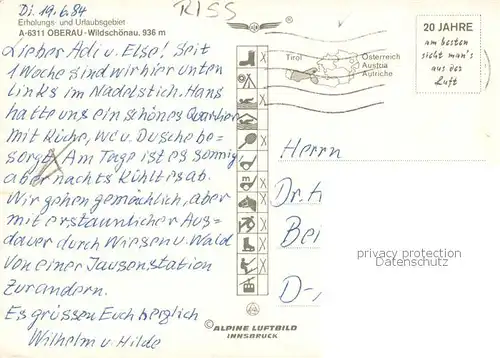 Di. 19.6.84
RISS
Erholungs- und Urlaubsgebiet
A-6311 OBERAU · Wildschönau. 936 m
Lieber Adi u. Else! Seit
1 Woche sind wir hier unten
links im Nadelstich. Hans
hatte uns ein schönes Quartier
mit Küche, WC u. Dusche be-
sorgt. Am Tage ist es sonnig,
aber nachts kühlt es ab.
Wir gehen gemächlich, aber
mit erstaunlicher Aus-
dauer durch Wiesen u. Wald
von einer Jausenstation
zur andern.
Es grüssen Euch herzlich
Wilhelm u. Hilde
Tirol
Österreich
Austria
Autriche
20 JAHRE
am besten
sieht man's
aus der
Luft
Herrn
Dr.
Ber
D-
privacy protection
Datenschutz
m
© ALPINE LUFTBILD
INNSBRUCK